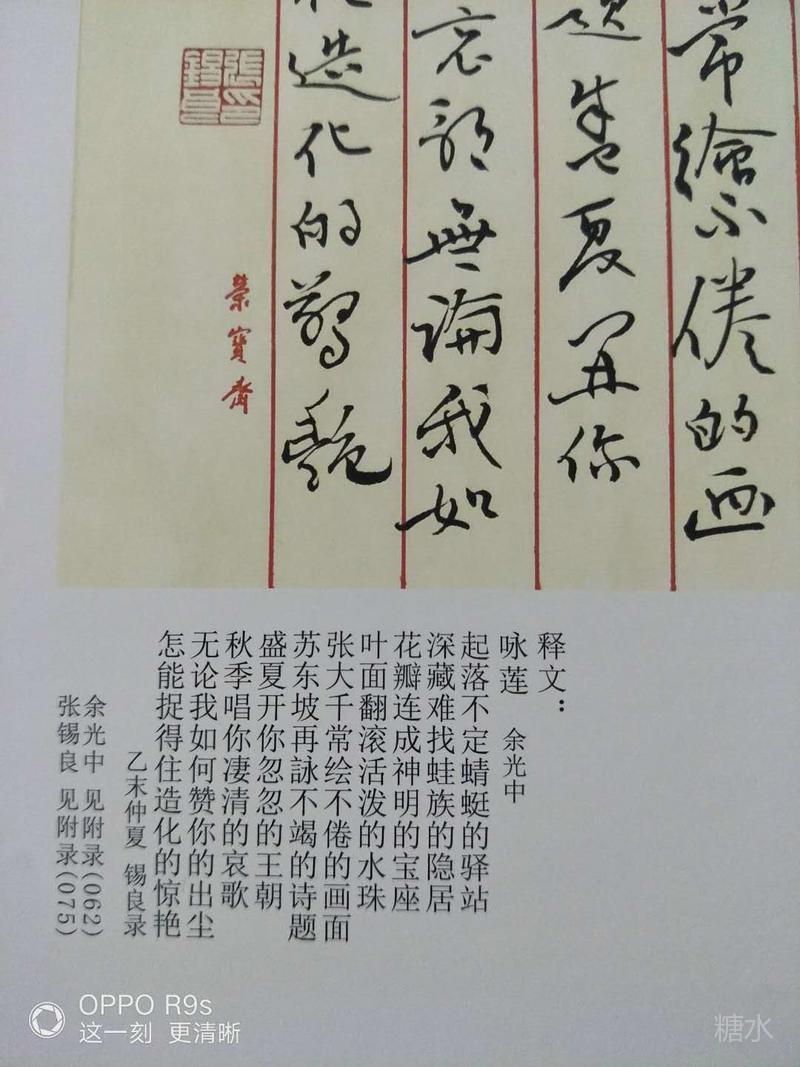 常繪不倦的画
题盛夏開你
哀歌無論我如
造化的驚艷
張印錫良
榮寶齋
释文：
咏莲 余光中
起落不定蜻蜓的驿站
深藏难找蛙族的隐居
花瓣连成神明的宝座
叶面翻滚活泼的水珠
张大千常绘不倦的画面
苏东坡再詠不竭的诗题
盛夏开你忽忽的王朝
秋季唱你凄清的哀歌
无论我如何赞你的出尘
怎能捉得住造化的惊艳
乙末仲夏 锡良录
余光中 见附录(062)
张锡良 见附录(075)
OPPO R9s
这一刻 更清晰
糖水